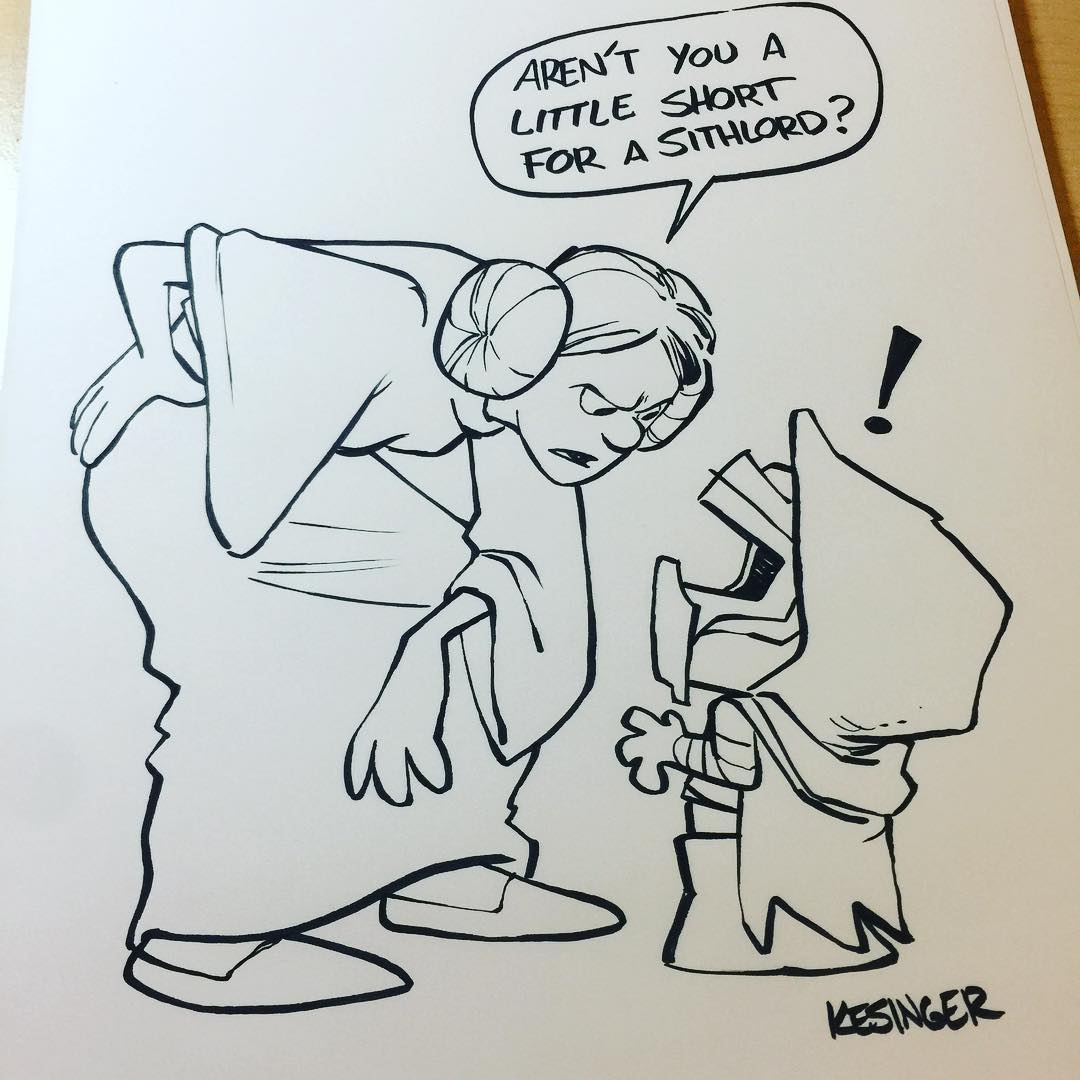 AREN'T YOU A
LITTLE SHORT
FOR A SITHLORD?
!
KESINGER